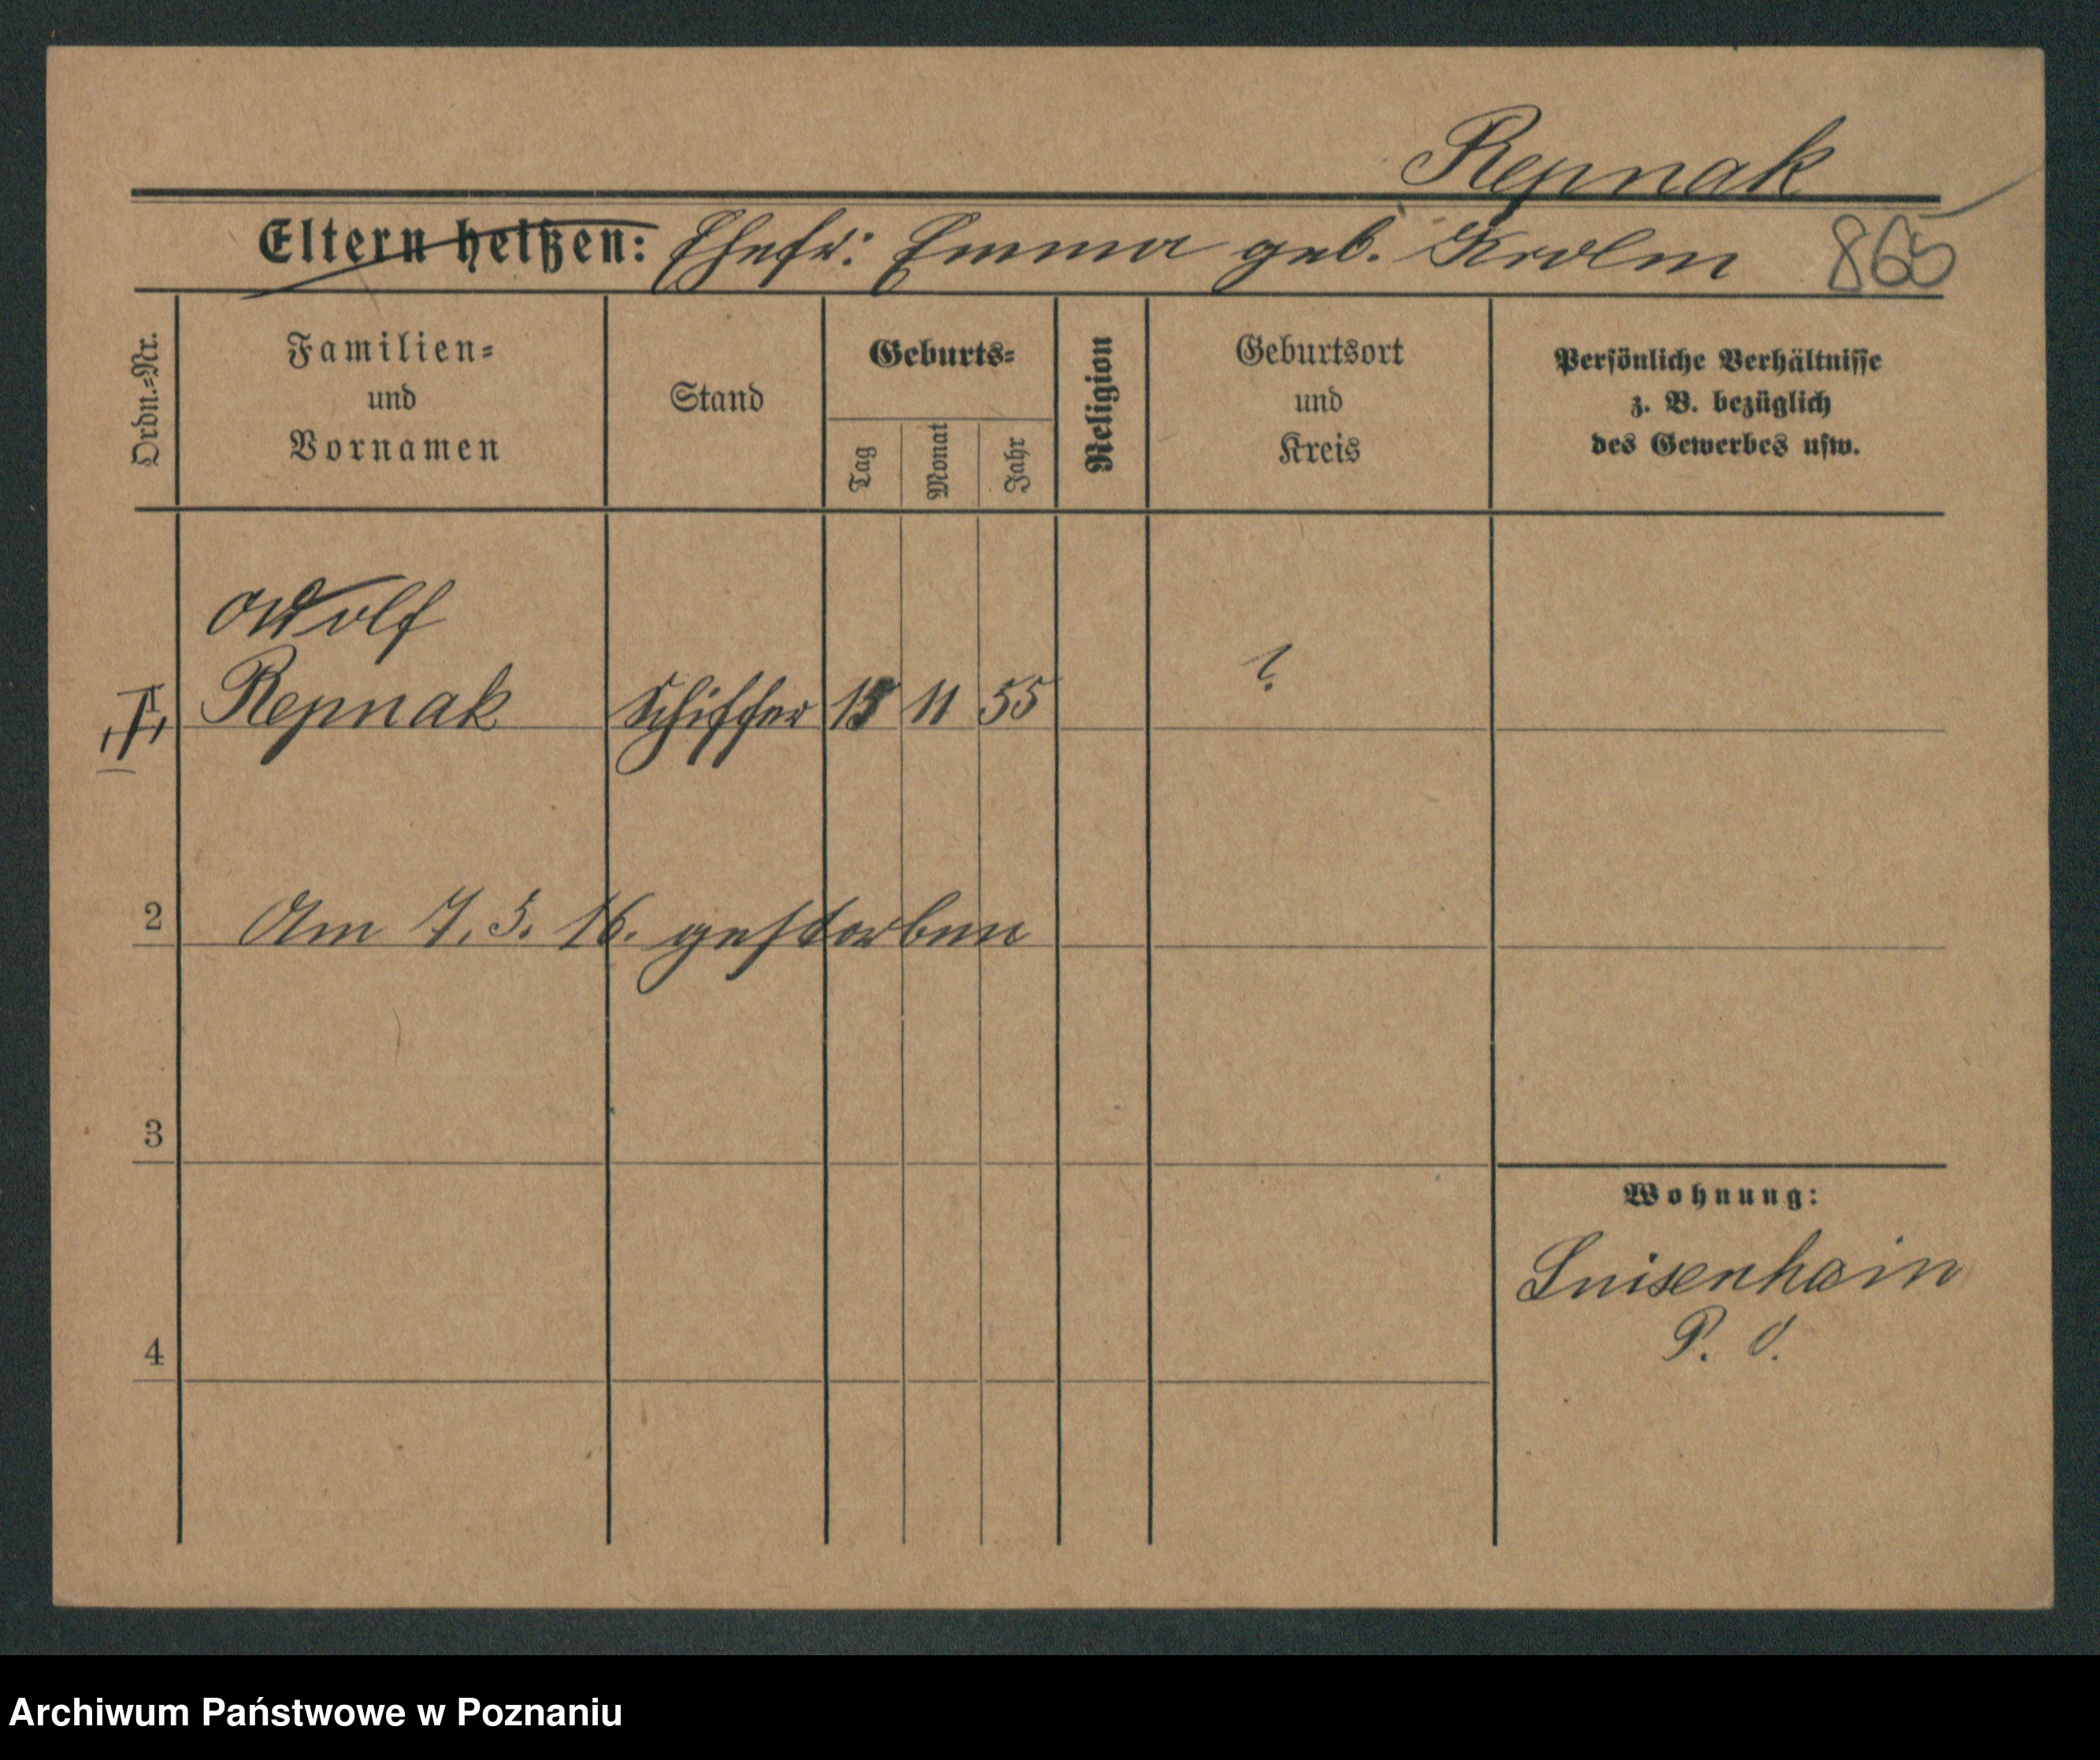 Repnak
Eltern heißen: Ehefr: Emma geb. Krolm 865
Ordn.=Nr.
Familien=
und
Vornamen
Stand
Geburts=
Tag
Monat
Jahr
Religion
Geburtsort
und
Kreis
Persönliche Verhältnisse
z. B. bezüglich
des Gewerbes usw.
Adolf
1 Repnak Schiffer 15 11 55 ?
2 Am 7. 5. 16. gestorben
3
Wohnung:
Luisenhain
P. O.
4
Archiwum Państwowe w Poznaniu